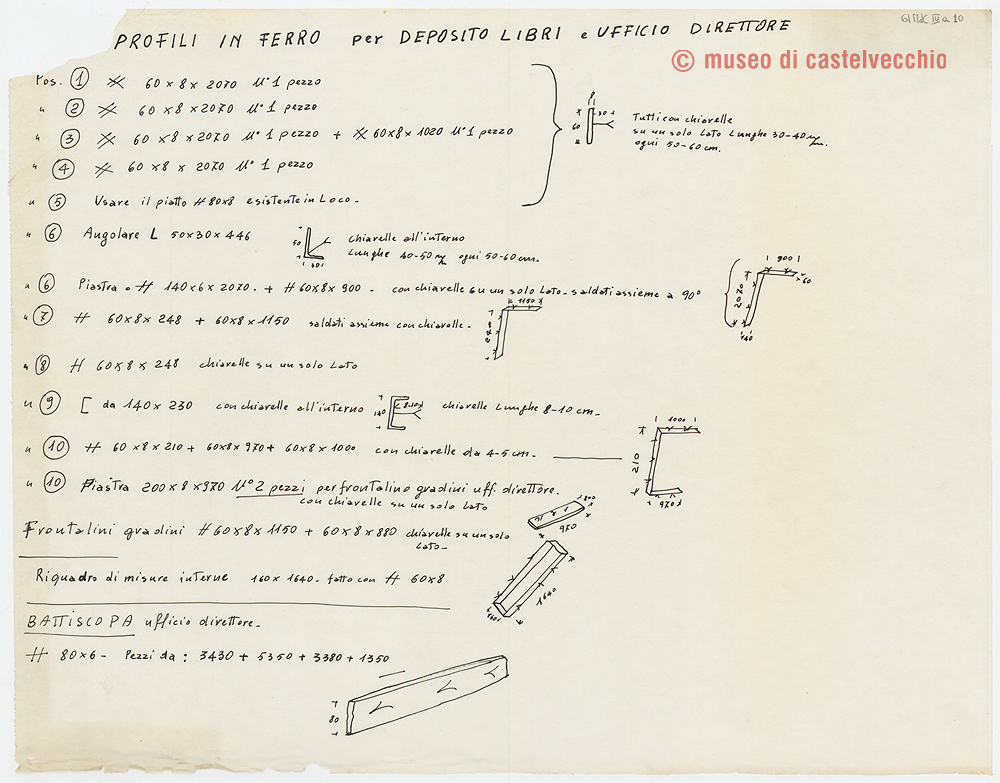 GIMdC IV a 10
PROFILI IN FERRO per DEPOSITO LIBRI e UFFICIO DIRETTORE
© museo di castelvecchio
Pos. 1 # 60x8x2070 N° 1 pezzo
" 2 # 60x8x2070 N° 1 pezzo
" 3 # 60x8x2070 N° 1 pezzo + # 60x8x1020 N° 1 pezzo
" 4 # 60x8x2070 N° 1 pezzo
8
60
30
Tutti con chiavelle
su un solo Lato Lunghe 30-40 m/m.
ogni 50-60 cm.
" 5 Usare il piatto # 80x8 esistente in Loco-
" 6 Angolare L 50x30x446
50
30
chiavelle all'interno
Lunghe 40-50 m/m ogni 50-60 cm.
" 6 Piastra # 140x6x2070. + # 60x8x900 - con chiavelle su un solo Lato- saldati assieme a 90°
900
60
2070
140
" 7 # 60x8x248 + 60x8x1150 saldati assieme con chiavelle-
1150
" 8 # 60x8x248 chiavelle su un solo Lato
" 9 [ da 140x230 con chiavelle all'interno
140
8-10
chiavelle Lunghe 8-10 cm-
" 10 # 60x8x210 + 60x8x970 + 60x8x1000 con chiavelle da 4-5 cm-
1000
210
970
" 10 Piastra 200x8x970 N° 2 pezzi per frontalino gradini uff. direttore.
con chiavelle su un solo Lato
970
Frontalini gradini # 60x8x1150 + 60x8x880 chiavelle su un solo
Lato-
Riquadro di misure interne 160x1640- fatto con # 60x8
1640
160
BATTISCOPA ufficio direttore-
# 80x6- Pezzi da: 3430 + 5350 + 3380 + 1350
80